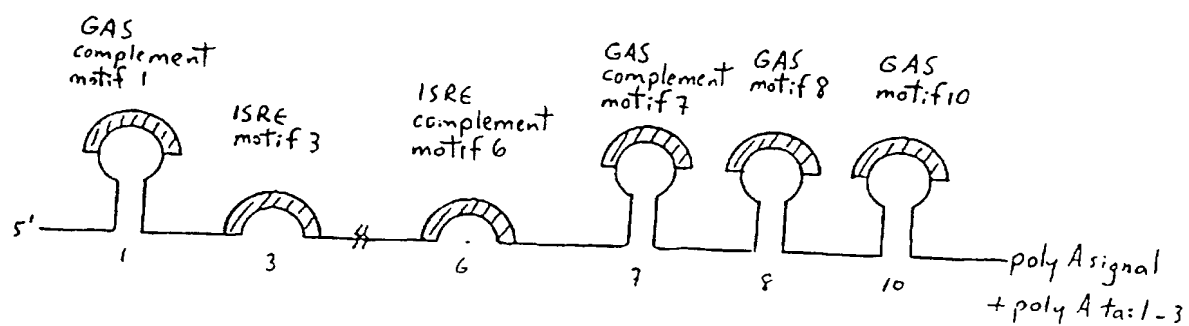 GAS
complement
motif 1
ISRE
motif 3
ISRE
complement
motif 6
GAS
complement
motif 7
GAS
motif 8
GAS
motif 10
5'
1
3
6
7
8
10
poly A signal
+ poly A tail - 3